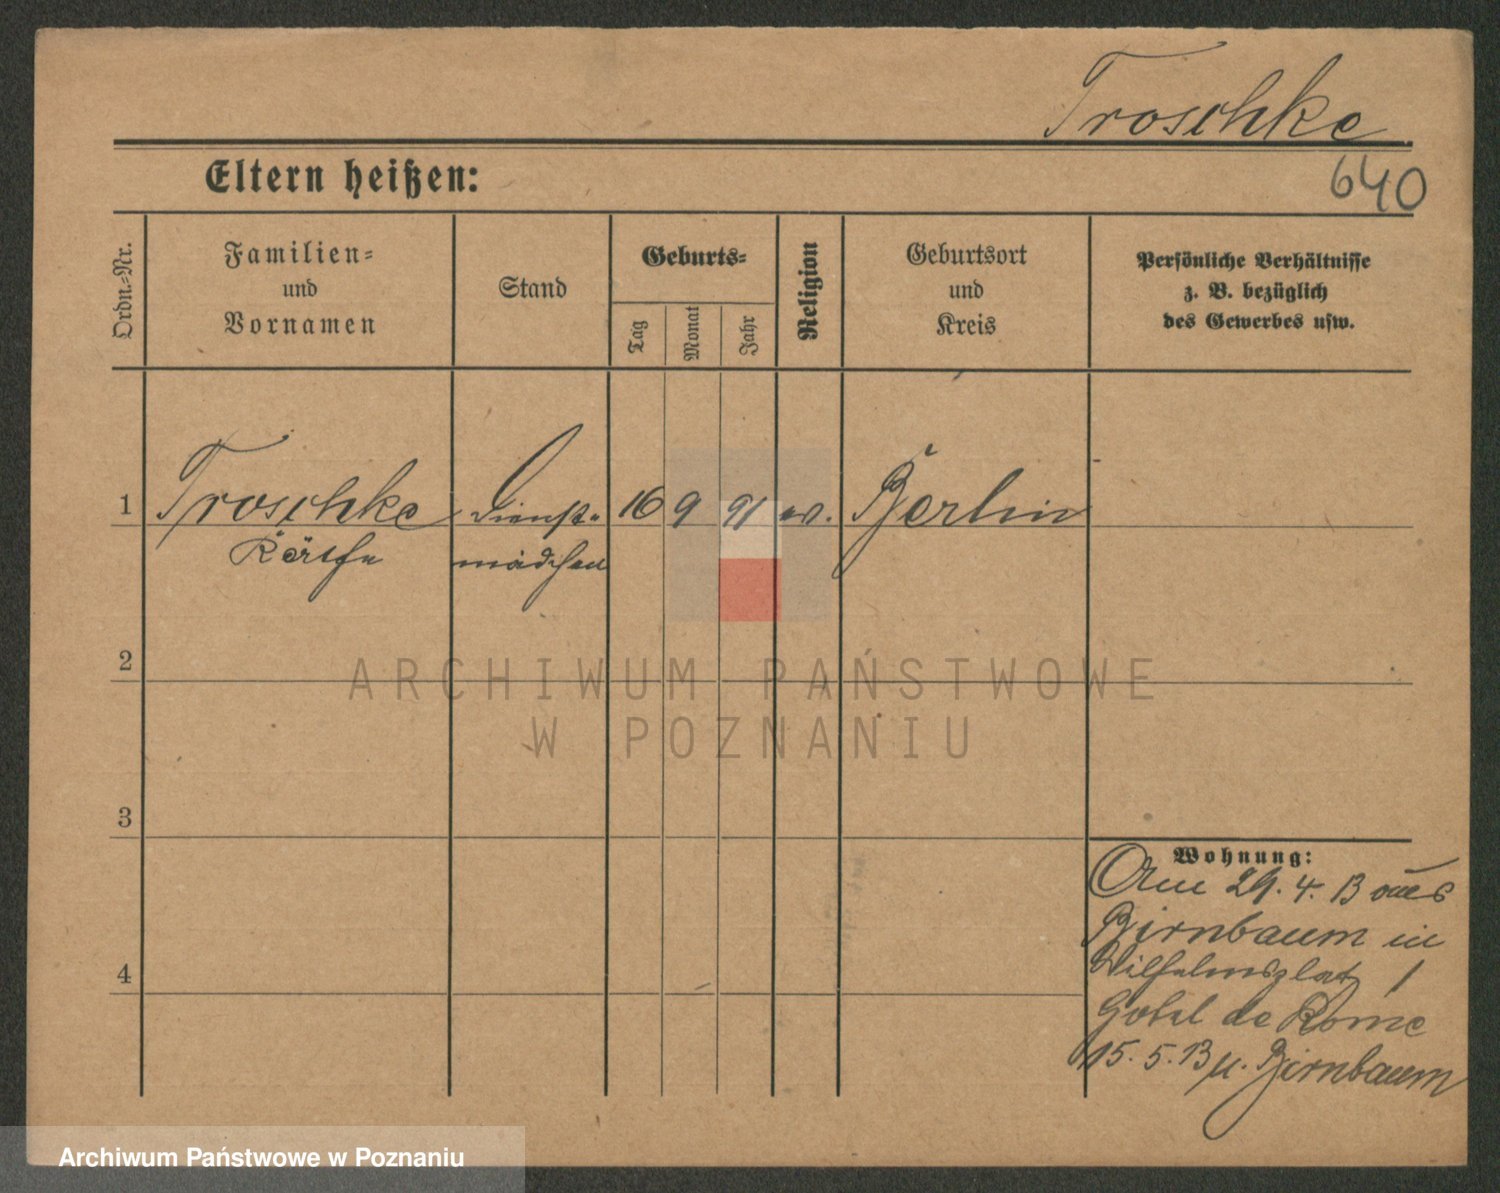 Troschke
640
Eltern heißen:
Ordn.-Nr.
Familien-
und
Vornamen
Stand
Geburts-
Tag
Monat
Jahr
Religion
Geburtsort
und
Kreis
Persönliche Verhältnisse
z. B. bezüglich
des Gewerbes usw.
1 Troschke Dienst- 16 9 91 ev. Berlin
Käthe mädchen
2
3
4
Wohnung:
29. 4. 13 aus
Birnbaum in
Wilhelmsplatz 1
Hotel de Rome
15. 5. 13 n. Birnbaum
ARCHIWUM PAŃSTWOWE
W POZNANIU
Archiwum Państwowe w Poznaniu